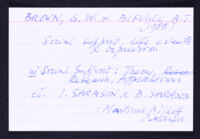 BROWN, G. W. & BIFULCO, A. T.
(1985)
Social support, life events
& depression
in Social Support: Theory,
Research, Applications
ed. I. SARASON & B. SARASON
: Martinus Nijhoff